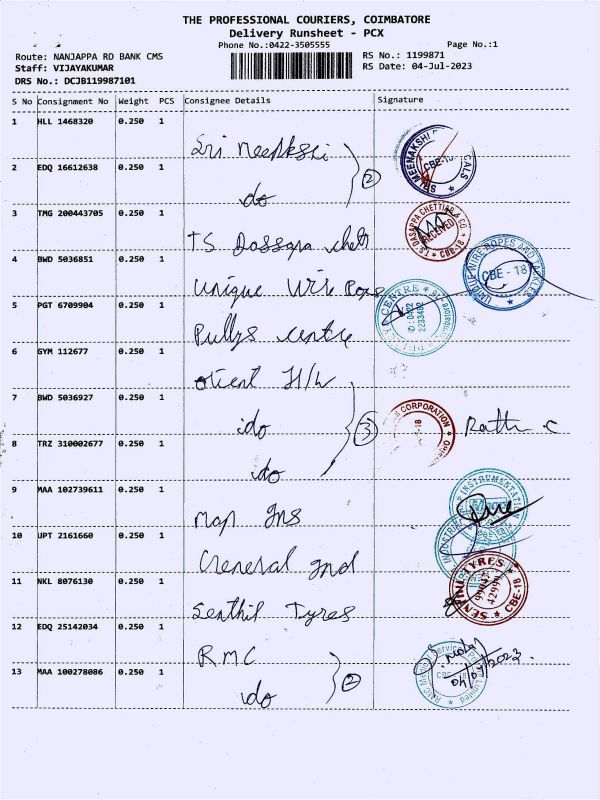 THE PROFESSIONAL COURIERS, COIMBATORE
Delivery Runsheet - PCX
Phone No.:0422-3505555 Page No.:1
Route: NANJAPPA RD BANK CMS RS No.: 1199871
Staff: VIJAYAKUMAR RS Date: 04-Jul-2023
DRS No.: DCJB119987101
S No Consignment No Weight PCS Consignee Details Signature
1 HLL 1468320 0.250 1 Sri Meenakshi
2 EDQ 16612638 0.250 1 do (2) SRI MEENAKSHI CBE-18
3 TMG 200443705 0.250 1 T.S. Dassapa Chetti T.S. DASAPPA CHETTIAR & CO RECEIVED CBE-18
4 BWD 5036851 0.250 1 Unique Wire Ropes UNIQUE WIRE ROPES AND TACKLES CBE - 18
5 PGT 6709904 0.250 1 Pullys centre CENTRE
6 GYM 112677 0.250 1 Orient H/W
7 BWD 5036927 0.250 1 do (3) CORPORATION Rathi C
8 TRZ 310002677 0.250 1 do
9 MAA 102739611 0.250 1 Map Ins INSTRUMENTATION
10 UPT 2161660 0.250 1 General Ind
11 NKL 8076130 0.250 1 Senthil Tyres TYRES CBE-18
12 EDQ 25142034 0.250 1 RMC
13 MAA 100278086 0.250 1 do (2) 04/07/2023